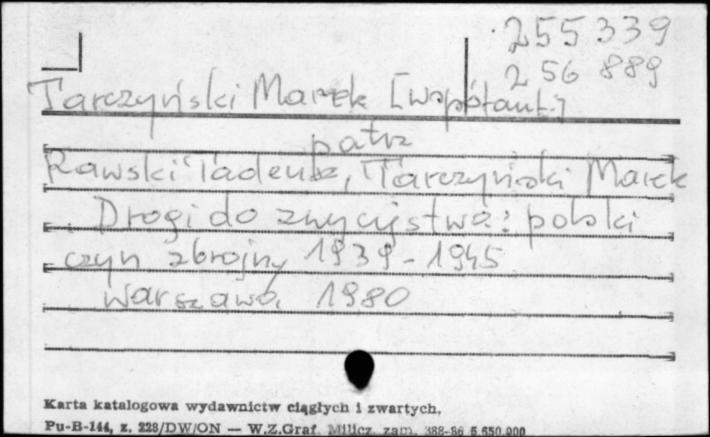 255339
256889
Tarczyński Marek [współaut.]
patrz
Rawski Tadeusz, Tarczyński Marek
Drogi do zwycięstwa: polski
czyn zbrojny 1939-1945
Warszawa 1980
Karta katalogowa wydawnictw ciągłych i zwartych,
Pu-B-144, z. 228/DW/ON — W.Z.Graf. Milicz, zam. 388-86 5.650.000